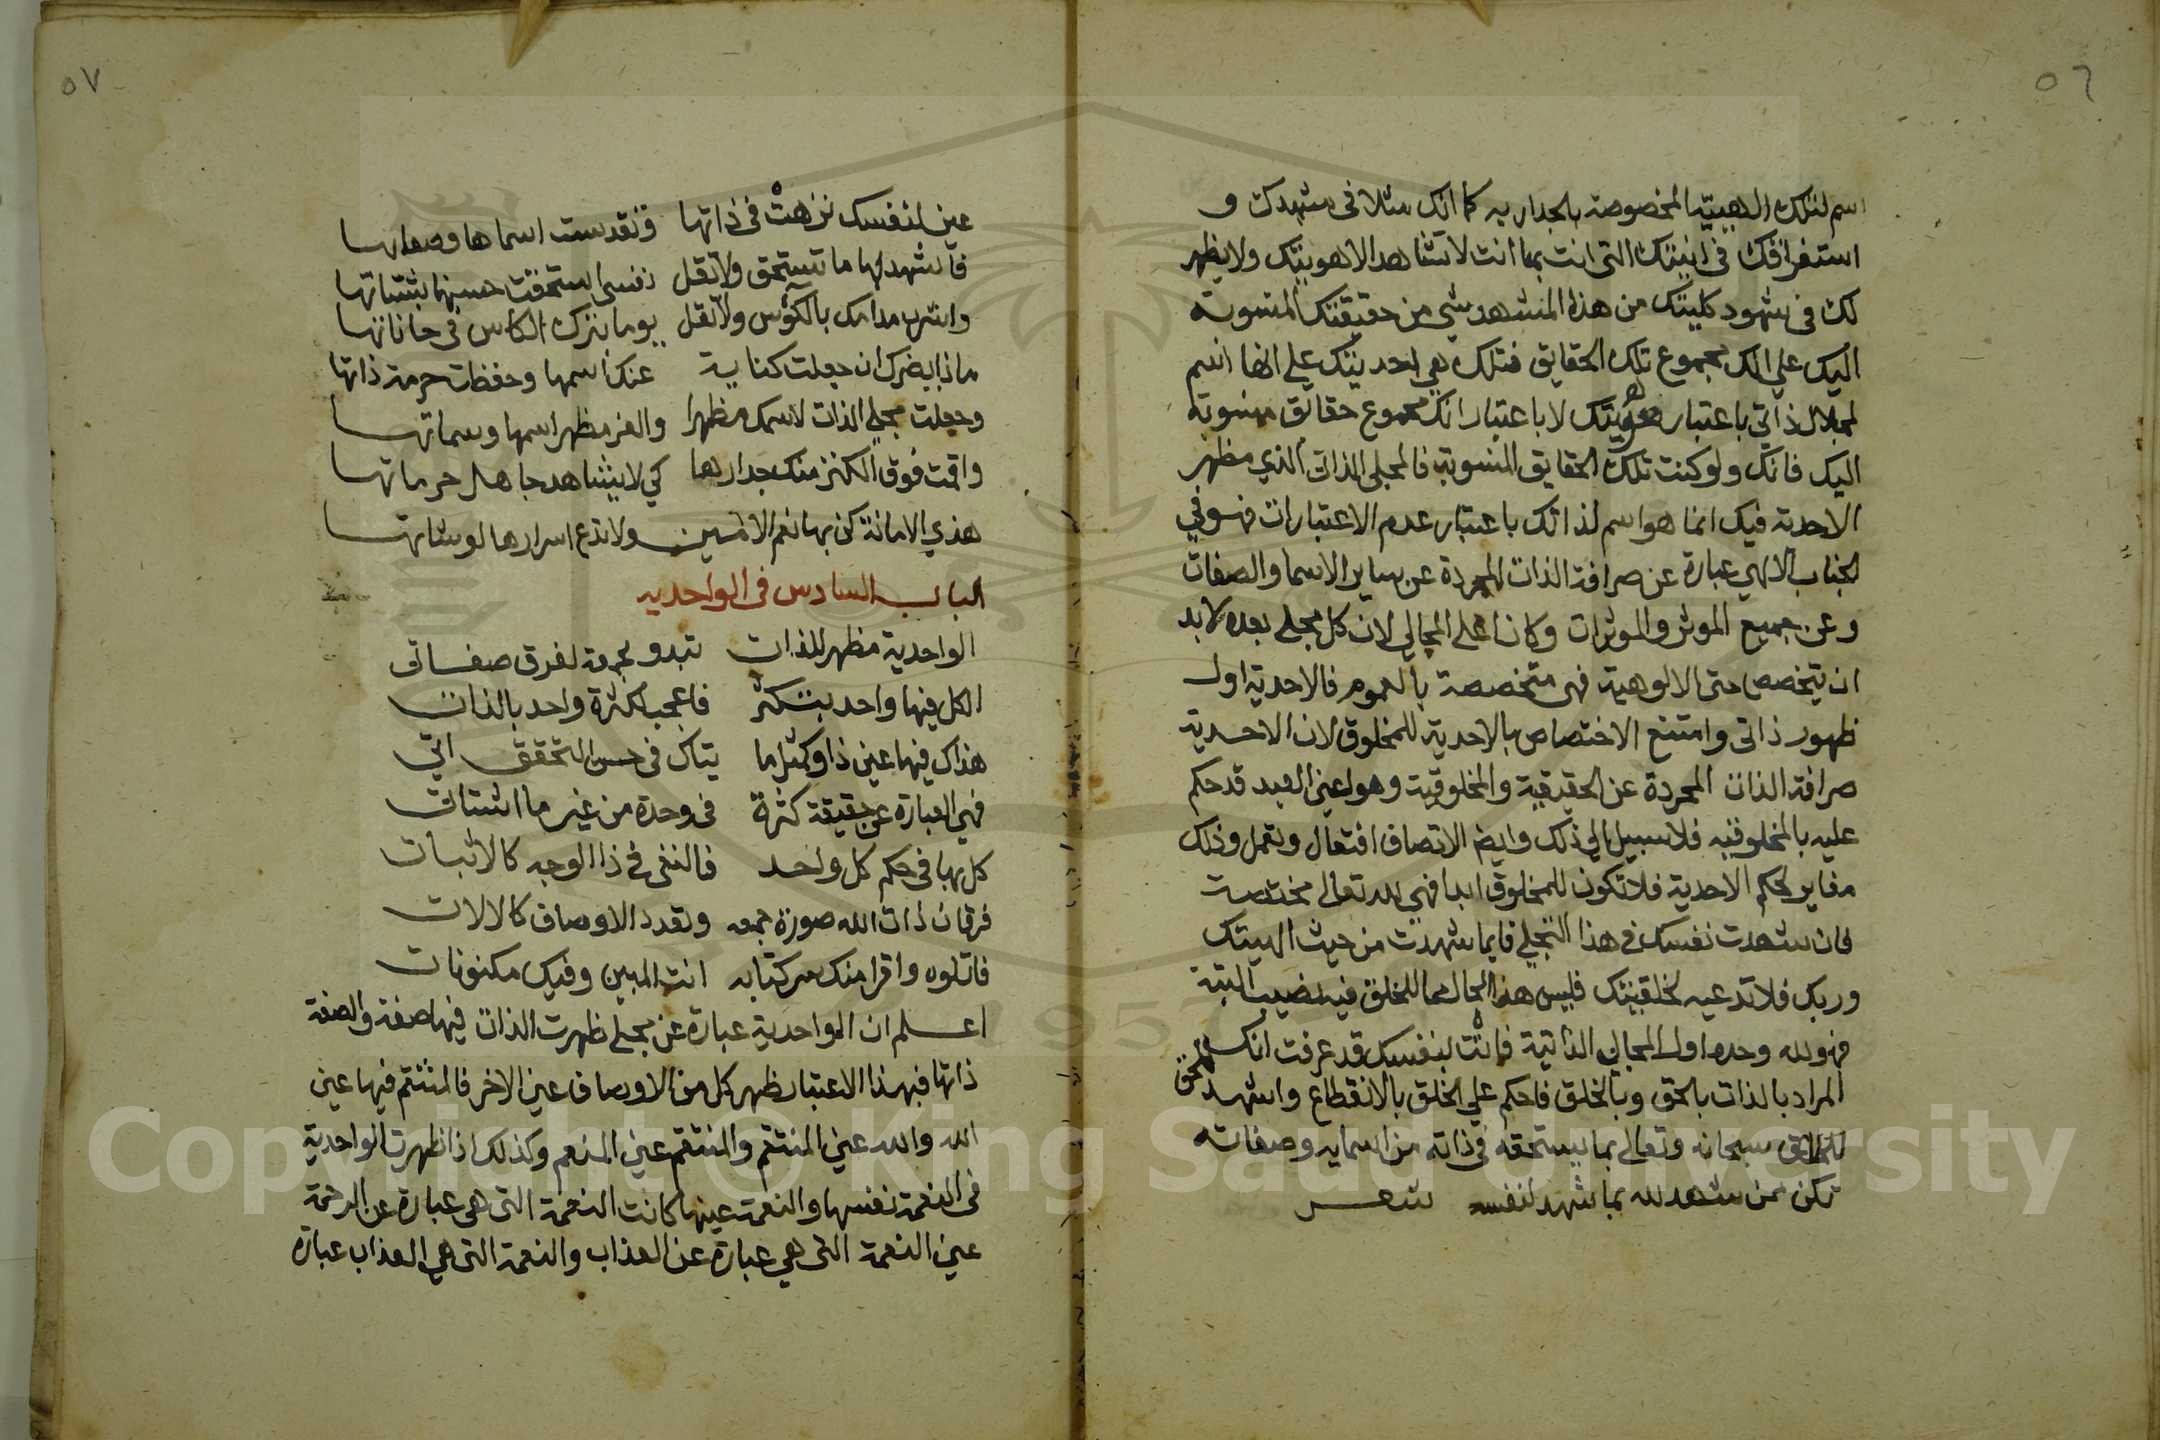 ٥٦
اسم لتلك الهيئة المخصوصة الجدارية كما انك مثلا في مشهدك و
استغراقك في انيتك التي انت بها انت لا تشاهد الا هويتك ولا يظهر
لك في شهود كليتك من هذا المشهد شي من حقيقتك المنسوبة
اليك علي انك مجموع تلك الحقايق فتلك هي احديتك علي انها اسم
لمجلال ذاتي باعتبار هويتك لا باعتبار انك مجموع حقايق منسوبة
اليك فانك ولو كنت تلك الحقايق المنسوبة فالمجلي الذاتي الذي مظهر
الاحدية فيك انما هو اسم لذاتك باعتبار عدم الاعتبارات فهو في
الجناب الالهي عبارة عن صرافة الذات المجردة عن ساير الاسما والصفات
وعن جميع الموثر والموثرات وكان اعلي المجالي لان كل مجلي بعده لا بد
ان يتخصص حتى الالوهية فهي متخصصة بالعموم فالاحدية اول
ظهور ذاتي وامتنع الاختصاص بالاحدية للمخلوق لان الاحدية
صرافة الذات المجردة عن الحقيقية والمخلوقية وهو اعني العبد قد حكم
عليه بالمخلوقيه فلا سبيل الي ذلك وايضا الاتصاف افتعال وتعمل وذلك
مغاير لحكم الاحدية فلا تكون للمخلوق ابدا فهي لله تعالى مختصة
فان شهدت نفسك في هذا التجلي فانما شهدت من حيث الهيتك
وربك فلا تدعيه لخلقيتك فليس هذا المجال مما للخلق فيه نصيب البتة
فهو لله وحده اول المجالي الذاتية فانت بنفسك قد عرفت انك
المراد بالذات بالحق وبالخلق فاحكم علي الخلق بالانقطاع واشهد للحق
سبحانه وتعالى بما يستحقه في ذاته من اسمايه وصفاته
تكن ممن شهد لله بما شهد لنفسه شعر
٥٧
عين لنفسك نزهت في ذاتها وتقدست اسماها وصفاتها
فاشهد لها ما تستحق ولا تقل نفسي استحقت حسنها بثباتها
واشرب مدامك بالكؤس ولا تقل يوما بترك الكاس في حاناتها
ماذا يضرك ان جعلت كناية عنك اسمها وحفظت حرمة ذاتها
وجعلت مجلي الذات لاسمك مظهرا والعز مظهر اسمها وسماتها
واقمت فوق الكنز منك جدارها كي لا يشاهد جاهل حرماتها
هذي الامانة كن بها نعم الامين ولا تدع اسرارها لوشاتها
الباب السادس في الواحدية
الواحدية مظهر للذات تبدو مجمعة لفرق صفاتي
الكل فيها واحد بتكثر فاعجب لكثرة واحد بالذات
هذاك فيها عين ذا وكمثل ما يتاك في حسن التحقق اتي
فهي العبارة عن حقيقة كثرة في وحدة من غير ما اشتات
كل بها في حكم كل واحد فالنفي في ذا الوجه كالاثبات
فرقان ذات الله صورة جمعه وتعدد الاوصاف كالالات
فاتلوه واقرا منك سر كتابه انت المبين وفيك مكنونات
اعلم ان الواحدية عبارة عن مجلي ظهرت الذات فيها صفة والصفة
ذاتا فبهذا الاعتبار ظهر كل من الاوصاف عين الاخر فالمنتقم فيها عين
الله والله عين المنتقم والمنتقم عين المنعم وكذلك اذا ظهرت الواحدية
في النعمة نفسها والنقمة عينها كانت النعمة التي هي عبارة عن الرحمة
عين النقمة التي هي عبارة عن العذاب والنقمة التي هي العذاب عبارة
Copyright © King Saud University
1957